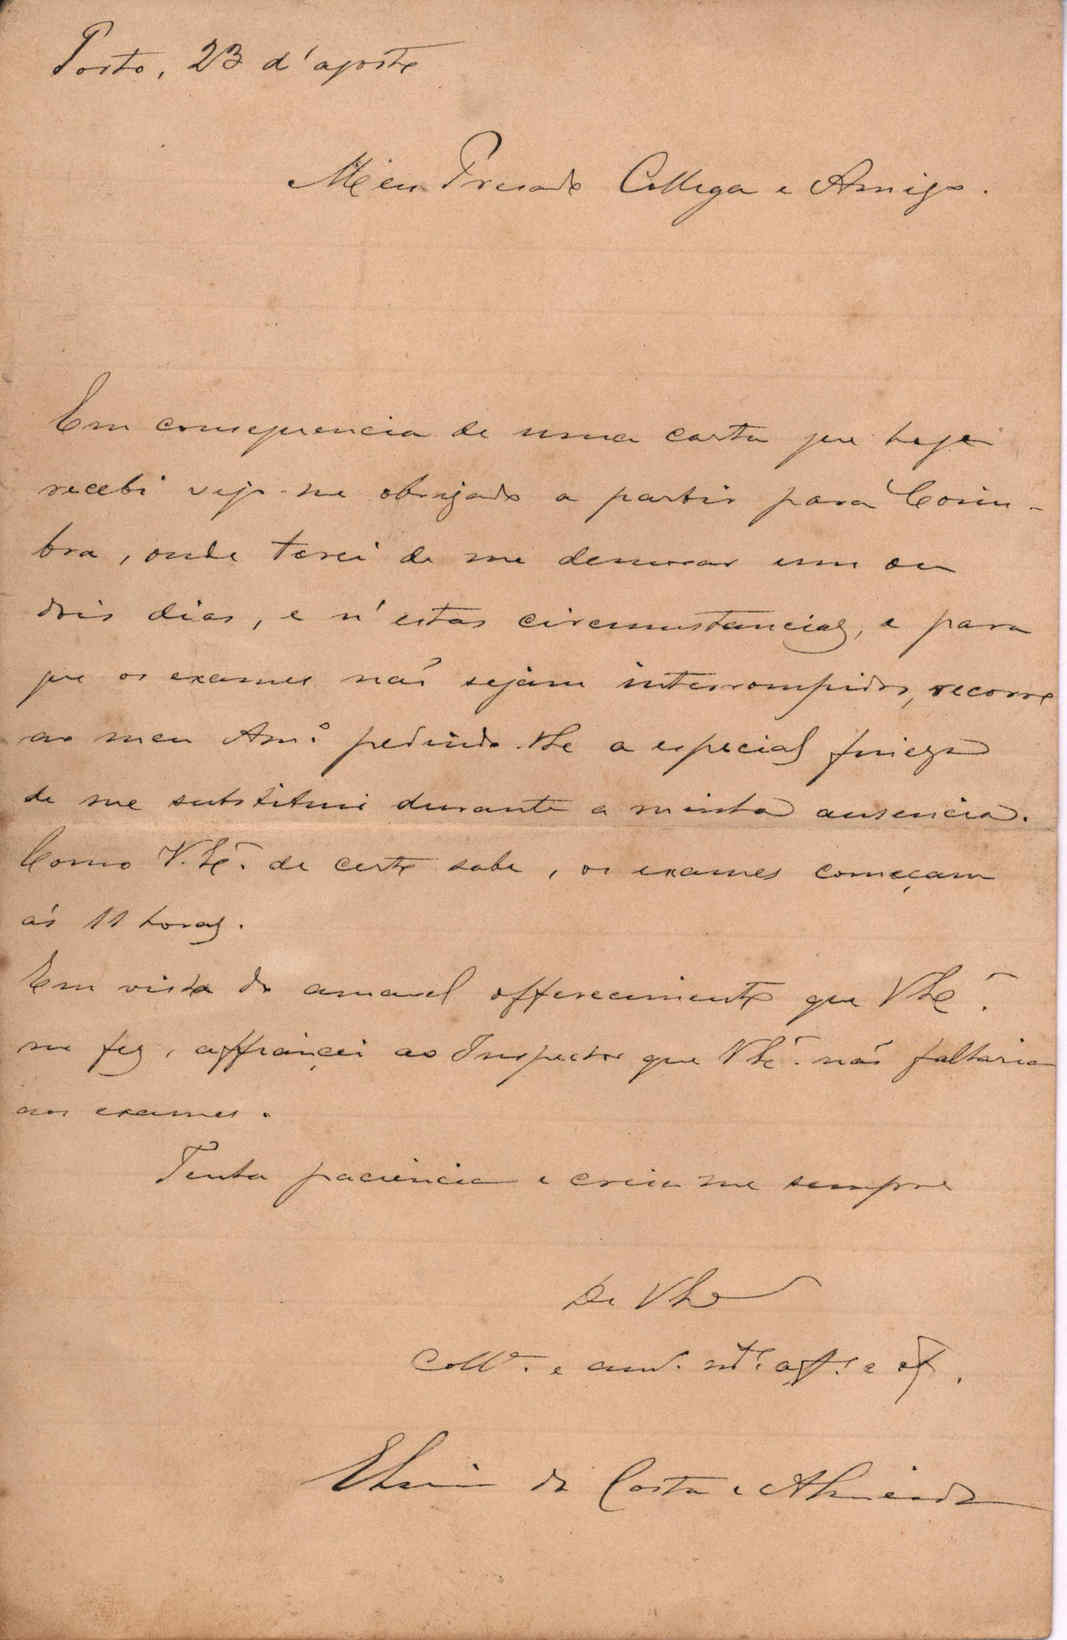 Porto, 23 d'agosto
Meu Presado Collega e Amigo.
Em consequencia de uma carta que hoje
recebi vejo-me obrigado a partir para Coim-
bra, onde terei de me demorar um ou
dois dias, e n'estas circumstancias, e para
que os exames não sejam interrompidos, recorro
ao meu Amº. pedindo-lhe a especial fineza
de me substituir durante a minha ausencia.
Como V. Exª. de certo sabe, os exames começam
ás 11 horas.
Em vista do amavel offerecimento que V Exª.
me fez, affiancei ao Inspector que V Exª. não faltaria
aos exames.
Tenha paciencia e creia-me sempre
De V Exª
Collª. e am. mtº. affº. e
da Costa e Almeida